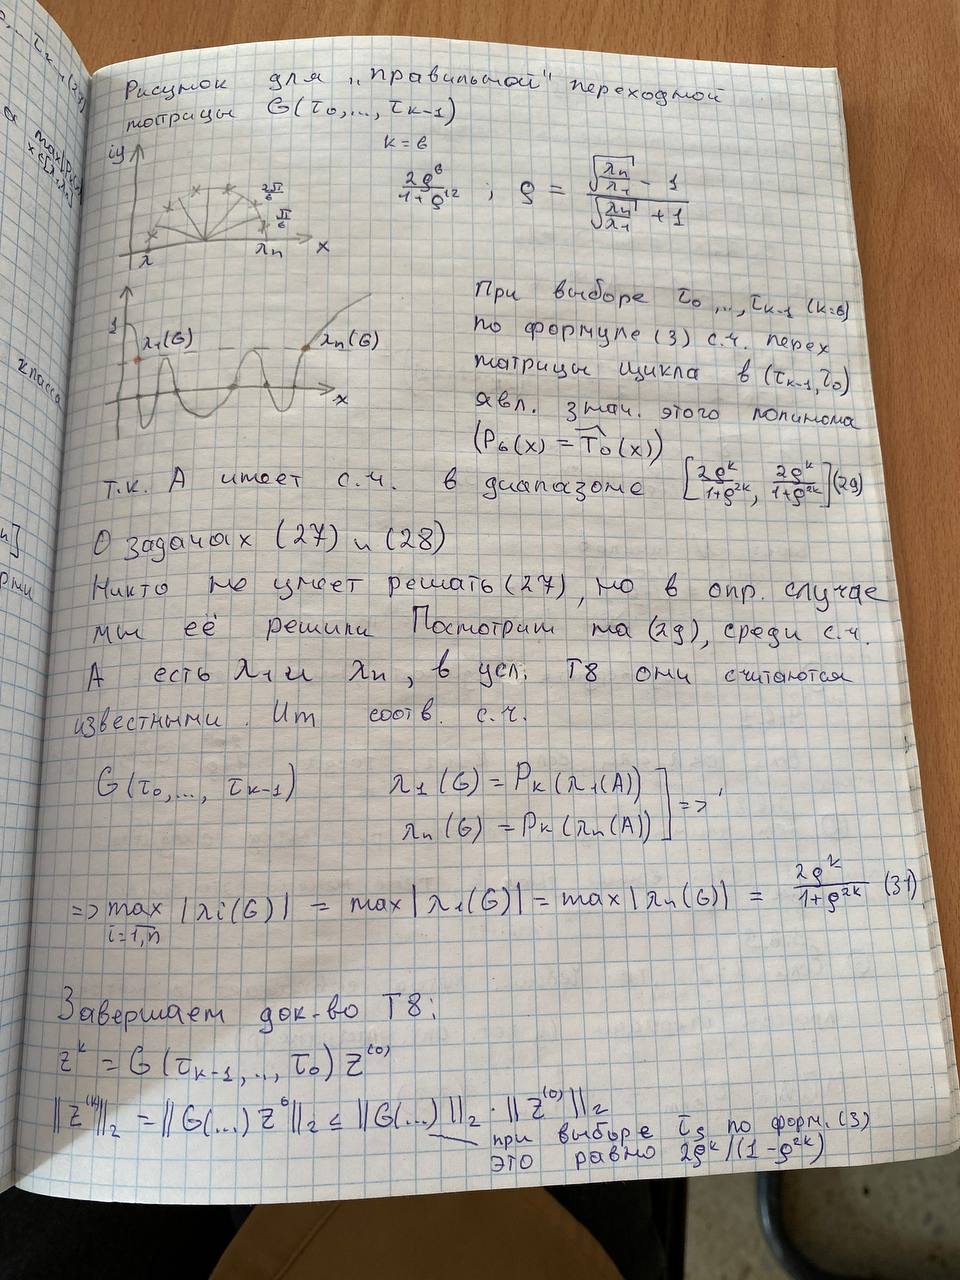 Рисунок для „правильной" переходной
матрицы G(τ₀,..., τₖ₋₁)
k = 6
iy
2π/6
π/6
λ
λn
x
2ρ⁶/(1+ρ¹²) ; ρ = (√(λn/λ1) - 1)/(√(λn/λ1) + 1)
1
λ1(G)
λn(G)
x
При выборе τ₀,..,τₖ₋₁ (k=6)
по формуле (3) с.ч. перех
матрицы цикла в (τₖ₋₁,τ₀)
явл. знач. этого полинома
(P₆(x) = T̂₀(x))
т.к. A имеет с.ч. в диапазоне [2ρᵏ/(1+ρ²ᵏ), 2ρᵏ/(1+ρ²ᵏ)] (29)
О задачах (27) и (28)
Никто не умеет решать (27), но в опр. случае
мы её решили Посмотрим на (29), среди с.ч.
A есть λ1 и λn, в усл. T8 они считаются
известными. Им соотв. с.ч.
G(τ₀,..., τₖ₋₁) λ1(G) = Pₖ(λ1(A))
λn(G) = Pₖ(λn(A)) ] =>
=> max i=1,n |λi(G)| = max|λ1(G)| = max|λn(G)| = 2ρᵏ/(1+ρ²ᵏ) (31)
Завершает док-во T8:
zᵏ = G(τₖ₋₁,.., τ₀) z⁽⁰⁾
||z⁽ᵏ⁾||₂ = ||G(...) z⁰||₂ ≤ ||G(...)||₂ · ||z⁽⁰⁾||₂
при выборе τₛ по форм. (3)
это равно 2ρᵏ/(1-ρ²ᵏ)
класса